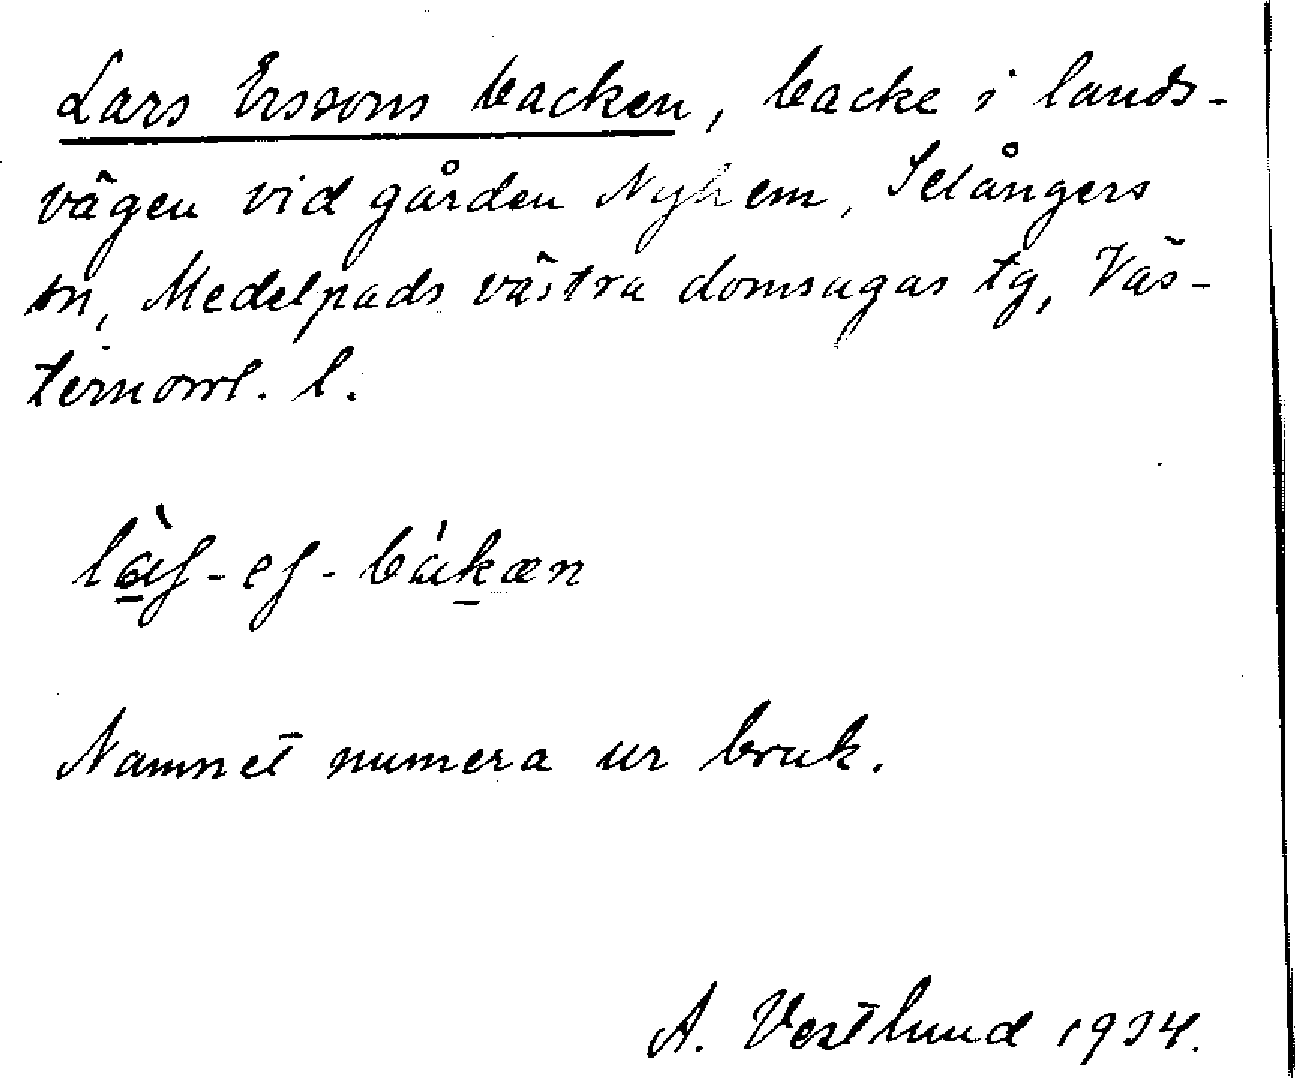 Lars Erssons backen, backe i lands-
vägen vid gården Nyhem, Selångers
sn, Medelpads västra domsagas tg, Väs-
ternorrl. l.
Namnet numera ur bruk.
A. Vestlund 1934.